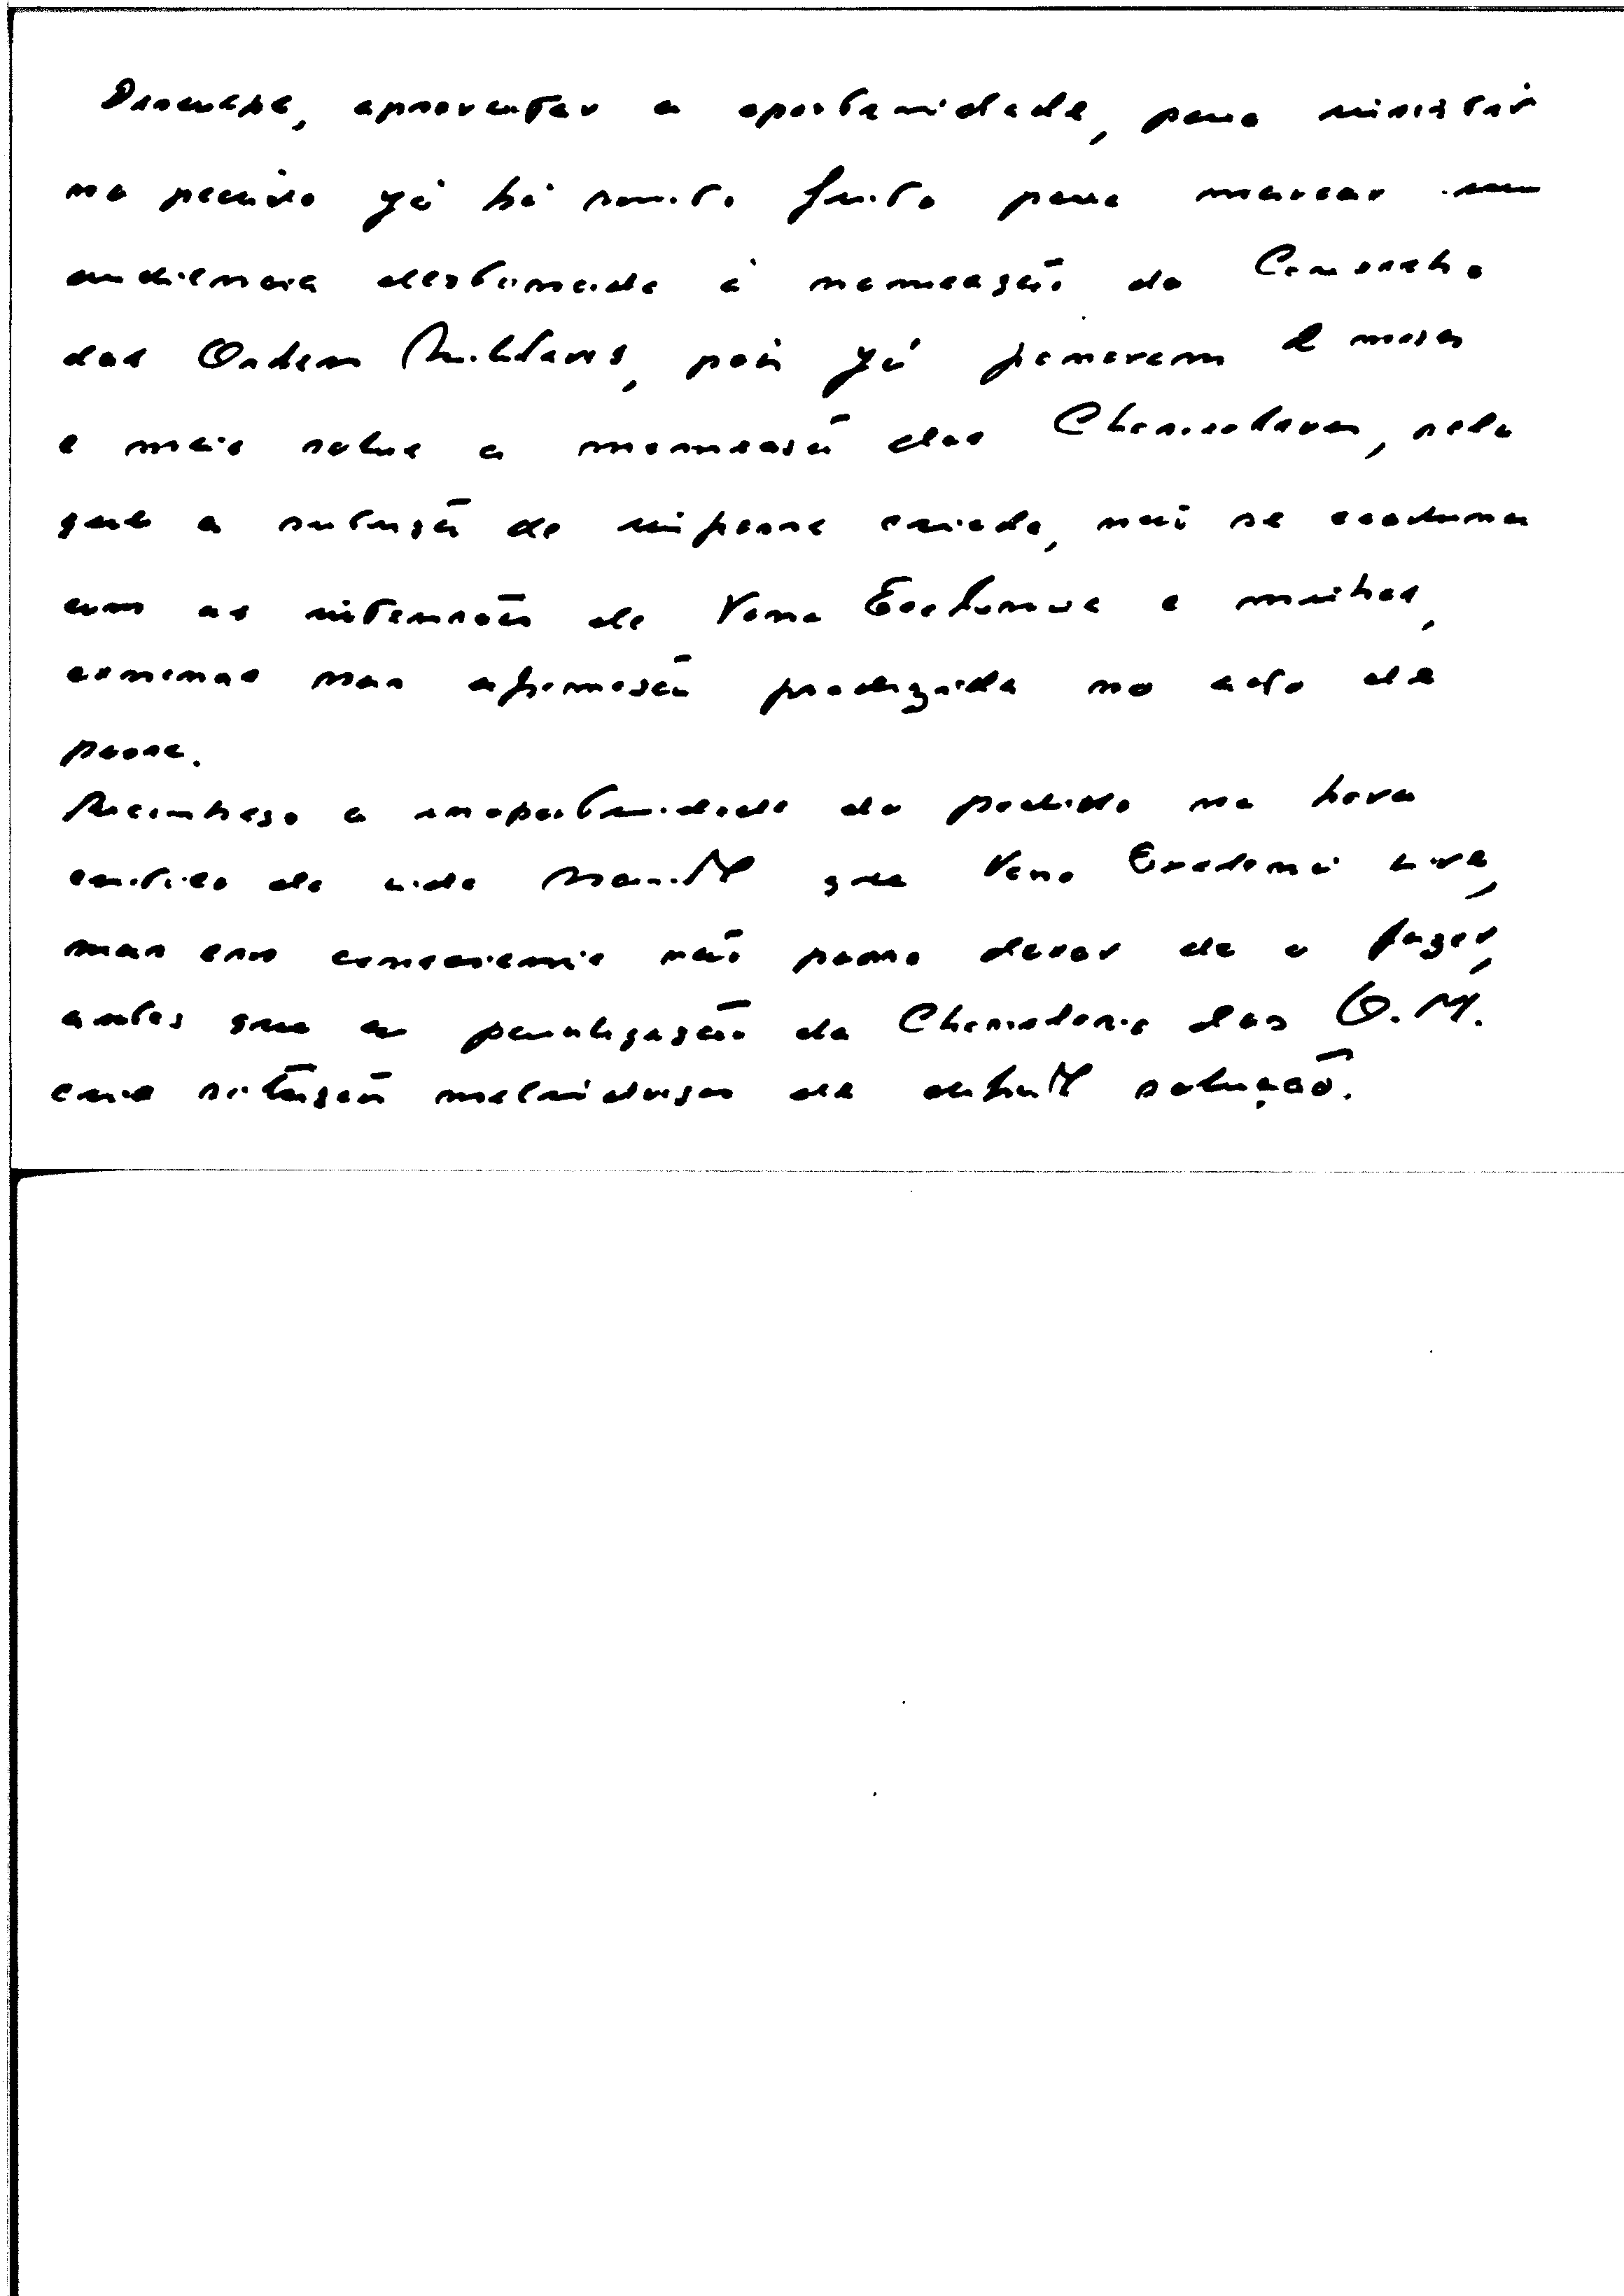 Desculpe, aproveitar a oportunidade, para insistir
no pedido já há muito feito para marcar uma
audiência destinada à nomeação do Conselho
das Ordens Militares, pois já passaram 2 meses
e meio sobre a nomeação dos Chanceleres, pelo
que a situação de impasse criada, não se coaduna
com as intenções de Vossa Excelência e minhas,
afirmação produzida no acto de
posse.
Reconheço a inoportunidade do pedido na hora
crítica de vida que Vossa Excelência vive,
mas em consciência não posso deixar de o fazer,
antes que a paralização da Chancelaria das O.M.
crie situação melindrosa de difícil solução.